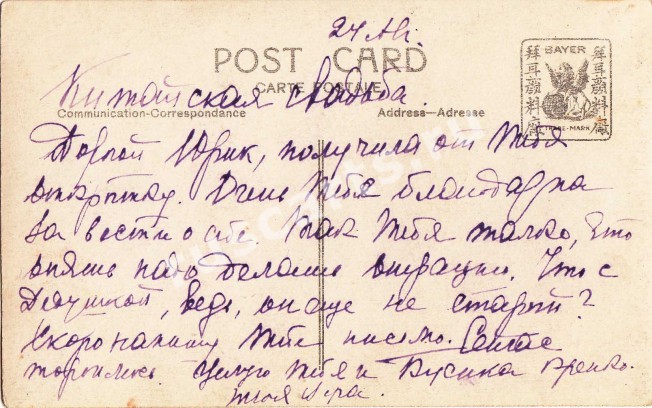 24 XII.
POST CARD
CARTE POSTALE
Китайская свадьба.
Communication-Correspondence
Address-Adresse
BAYER
拜耳顔料廠
拜耳顔料廠
TRADE-MARK
Дорогой Юрик, получила от тебя
открытку. Очень тебе благодарна
за вести о себе. Как тебя жалко, что
опять надо делать операцию. Что с
Дедушкой, ведь он еще не старый?
Скоро напишу тебе письмо. Сейчас
тороплюсь Целую тебя и Бусика крепко.
твоя Ира.